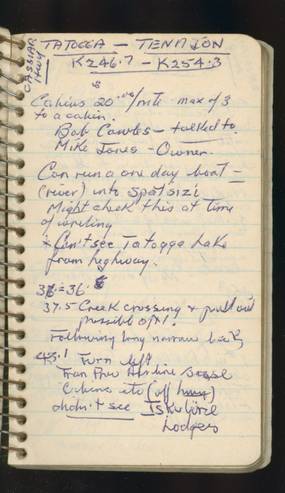 CASSIAR HWY
TATOGGA — TENAJON
K246.7 – K254.3
Cabins 20.00/nite max of 3
to a cabin.
Bob Cowles – talked to
Mike Jones – Owner.
Can run a one day boat –
(river) into Spatsizi
Might check this at time
of writing
* Can't see Tatogga Lake
from highway.
36
37.5 Creek crossing & pull out
possible opt!
Following long narrow
43.1 Turn left
Base
Cabins etc (off hwy)
didn't see Iskut
Lodges